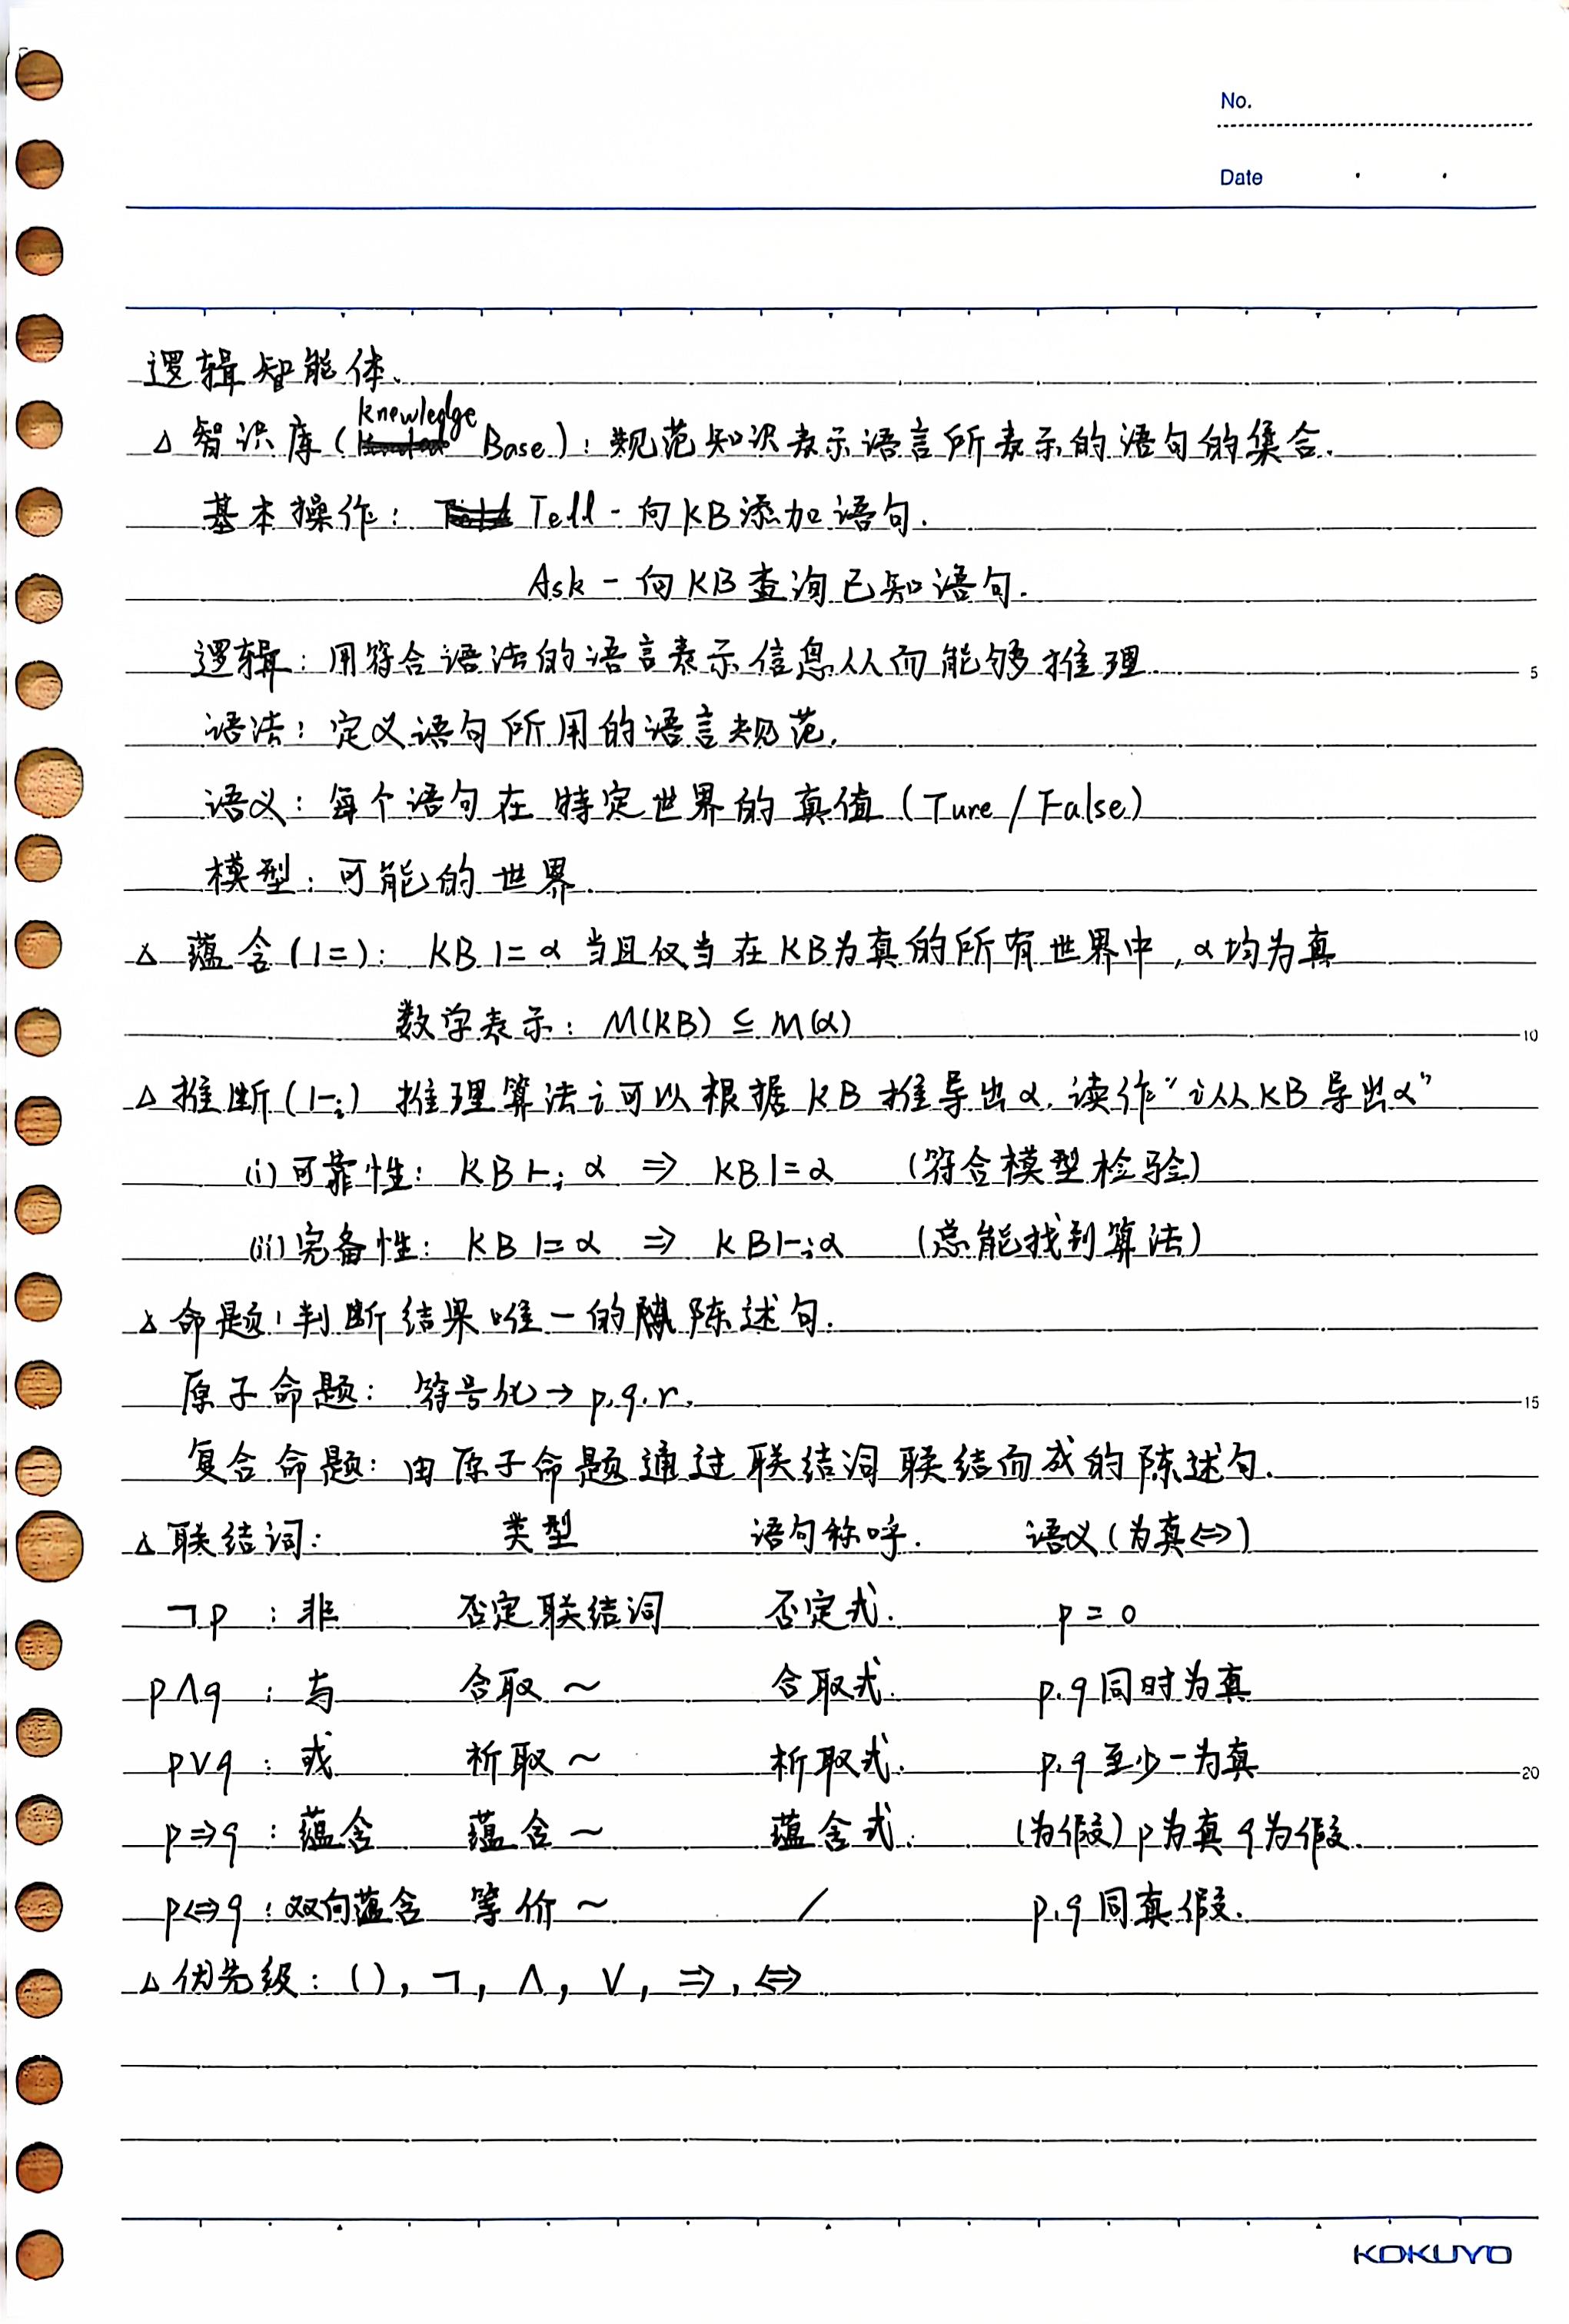 No.
Date
逻辑智能体.
△ 智识库(knewledge Base): 规范知识表示语言所表示的语句的集合.
基本操作: Tell - 向KB添加语句.
Ask - 向KB查询已知语句.
逻辑: 用符合语法的语言表示信息从而能够推理.
5
语法: 定义语句所用的语言规范.
语义: 每个语句在特定世界的真值(Ture/False)
模型: 可能的世界.
△ 蕴含(|=): KB |= α 当且仅当在KB为真的所有世界中, α均为真
数学表示: M(KB) ⊆ M(α)
10
△ 推断(|-i) 推理算法i可以根据KB推导出α. 读作“i从KB导出α”
(i)可靠性: KB |-i α ⇒ KB |= α (符合模型检验)
(ii)完备性: KB |= α ⇒ KB |-i α (总能找到算法)
△ 命题: 判断结果唯一的陈述句.
原子命题: 符号化→p.q.r.
15
复合命题: 由原子命题通过联结词联结而成的陈述句.
△ 联结词: 类型 语句称呼. 语义(为真⇔)
¬p : 非 否定联结词 否定式. p = 0
p∧q : 与 合取~ 合取式. p.q同时为真
p∨q : 或 析取~ 析取式. p.q至少一为真
20
p⇒q : 蕴含 蕴含~ 蕴含式. (为假) p为真q为假.
p⇔q : 双向蕴含 等价~ / p,q同真假.
△ 优先级: ( ), ¬, ∧, ∨, ⇒, ⇔
KOKUYO